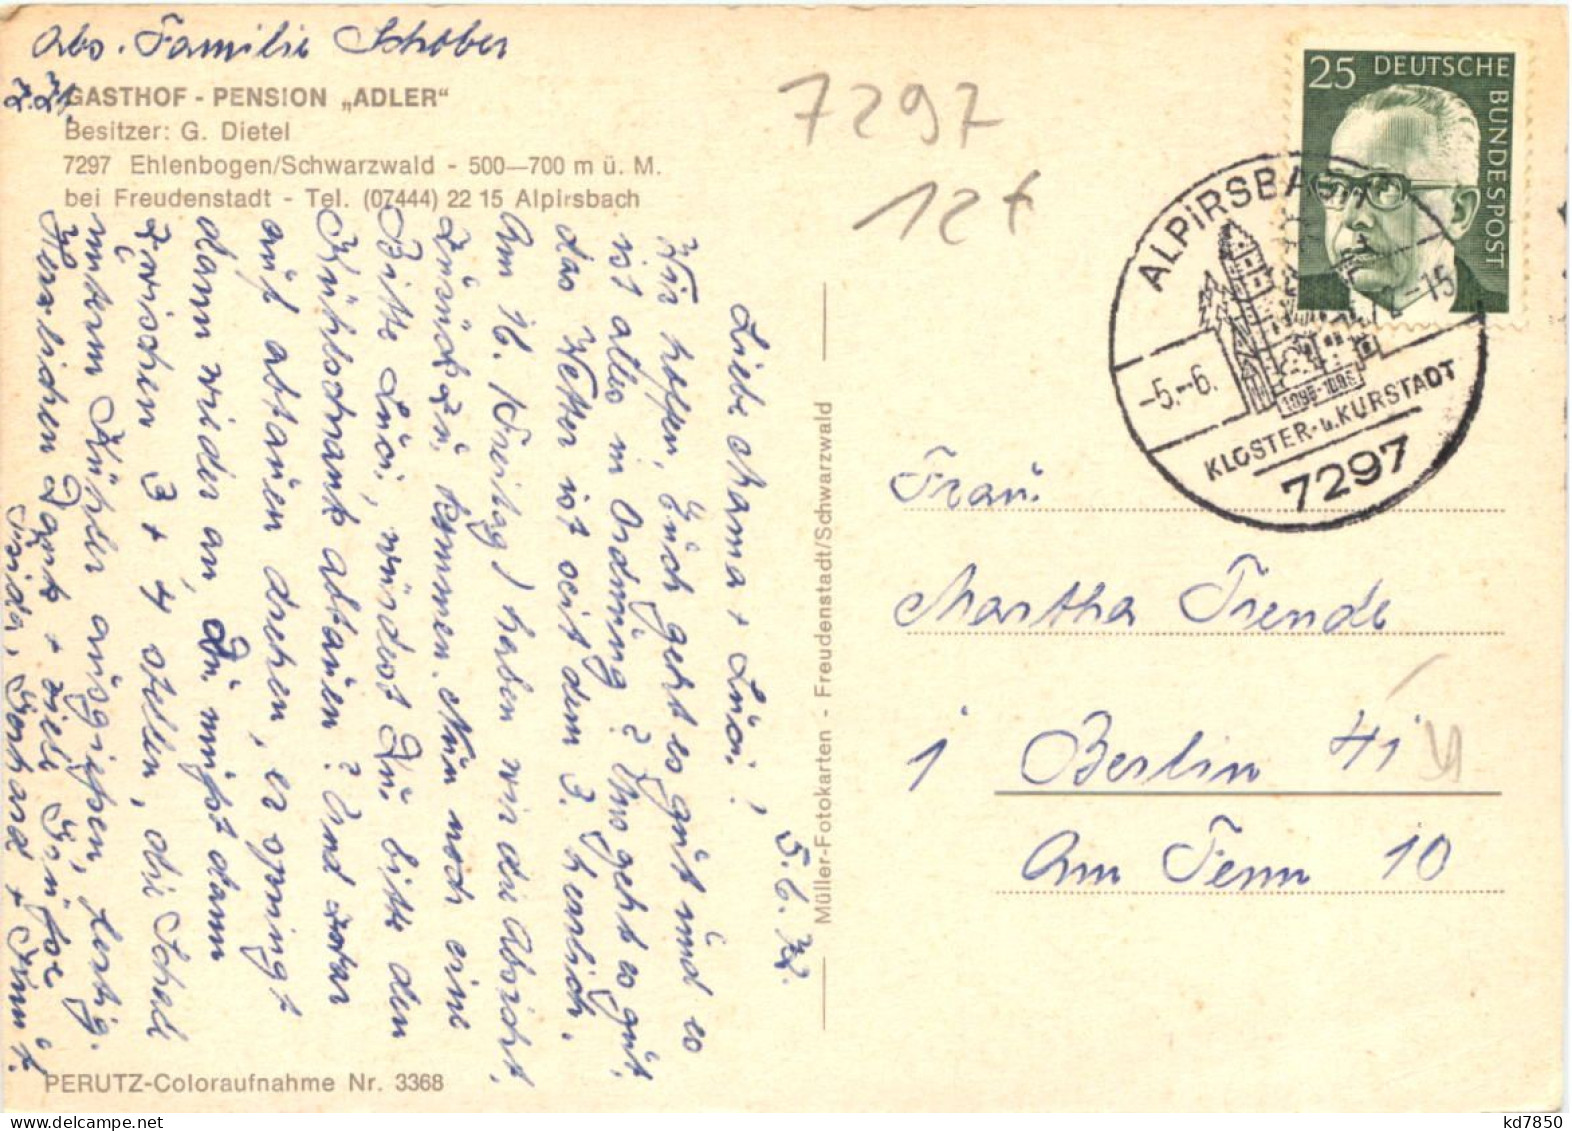 Abs. Familie Schober
z.Zt.
GASTHOF - PENSION „ADLER"
Besitzer: G. Dietel
7297 Ehlenbogen/Schwarzwald - 500—700 m ü. M.
bei Freudenstadt - Tel. (07444) 22 15 Alpirsbach
5.6.72.
Liebe Mama + Luci!
Wir hoffen, Euch geht es gut und es
ist alles in Ordnung? Uns geht es gut,
das Wetter ist seit dem 3. herrlich.
Am 16. (Freitag) haben wir die Absicht,
zurückzu kommen. Nun noch eine
Bitte Luci, würdest Du bitte den
Kühlschrank abtauen? Und zwar
auf abtauen drehen, er springt
dann wieder an, Du mußt dann
zwischen 3 + 4 stellen, die Schale
unterm Kühler ausgießen, fertig.
Herzlichen Dank + viele Grüße
Frida, Gerhard +
Müller-Fotokarten - Freudenstadt/Schwarzwald
PERUTZ-Coloraufnahme Nr. 3368
7297
12
25 DEUTSCHE
BUNDESPOST
ALPIRSBACH
-5.-6.
-15
1095-1095
KLOSTER-u.KURSTADT
7297
Frau
Martha Trende
1 Berlin 41
Am Fenn 10
kd7850